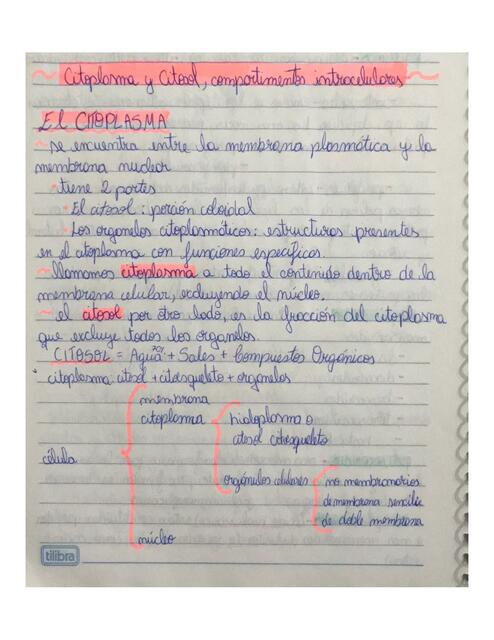 Citoplasma y Citosol, compartimentos intracelulares
El CITOPLASMA
~ se encuentra entre la membrana plasmática y la
membrana nuclear
• tiene 2 partes
• El citosol : porción coloidal
• Los organelos citoplasmáticos : estructuras presentes
en el citoplasma con funciones específicas.
~ llamamos citoplasma a todo el contenido dentro de la
membrana celular, excluyendo el núcleo.
~ el citosol por otro lado, es la fracción del citoplasma
que excluye todos los organelos.
CITOSOL = Agua + Sales + Compuestos Orgánicos
citoplasma: citosol + citoesqueleto + organelos
membrana
citoplasma
hialoplasma o
citosol citoesqueleto
célula
orgánulos celulares
no membranarios
de membrana sencilla
de doble membrana
núcleo
tilibra